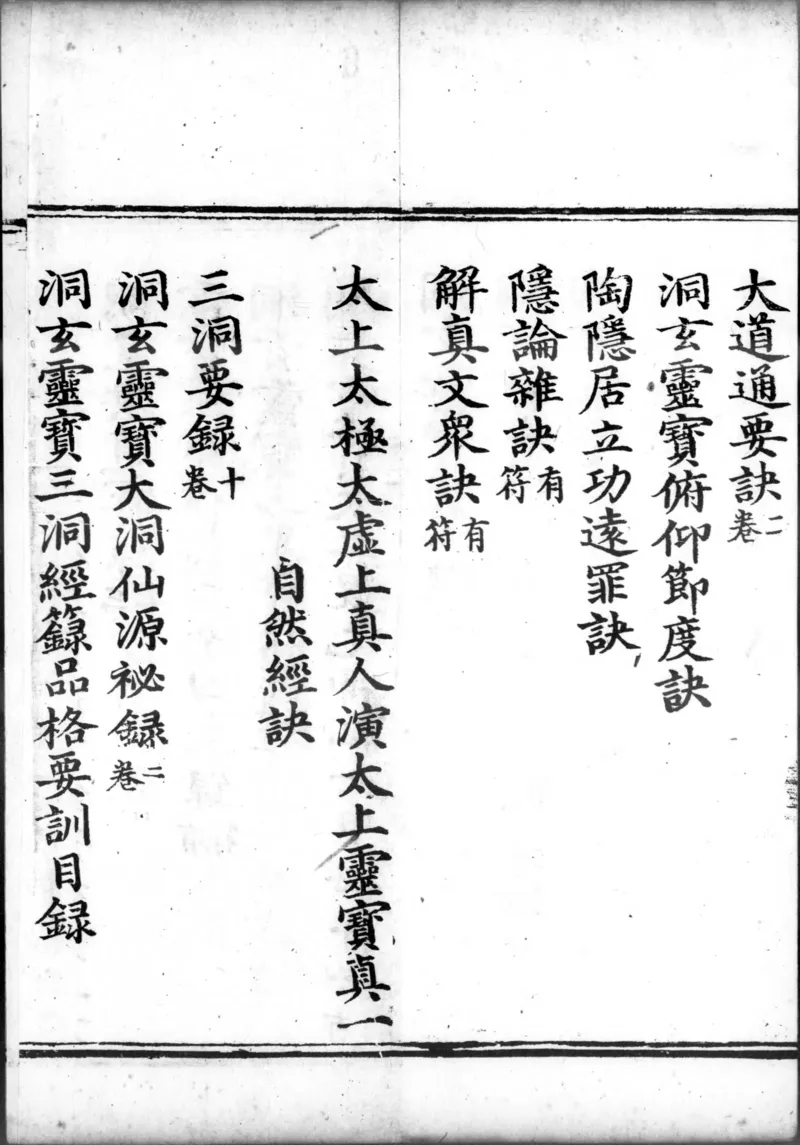 大道通要訣二卷
洞玄靈寶俯仰節度訣
陶隱居立功遠罪訣
隱論雜訣有符
解真文衆訣有符
太上太極太虛上真人演太上靈寶真一
自然經訣
三洞要録十卷
洞玄靈寶大洞仙源祕録二卷
洞玄靈寶三洞經籙品格要訓目録